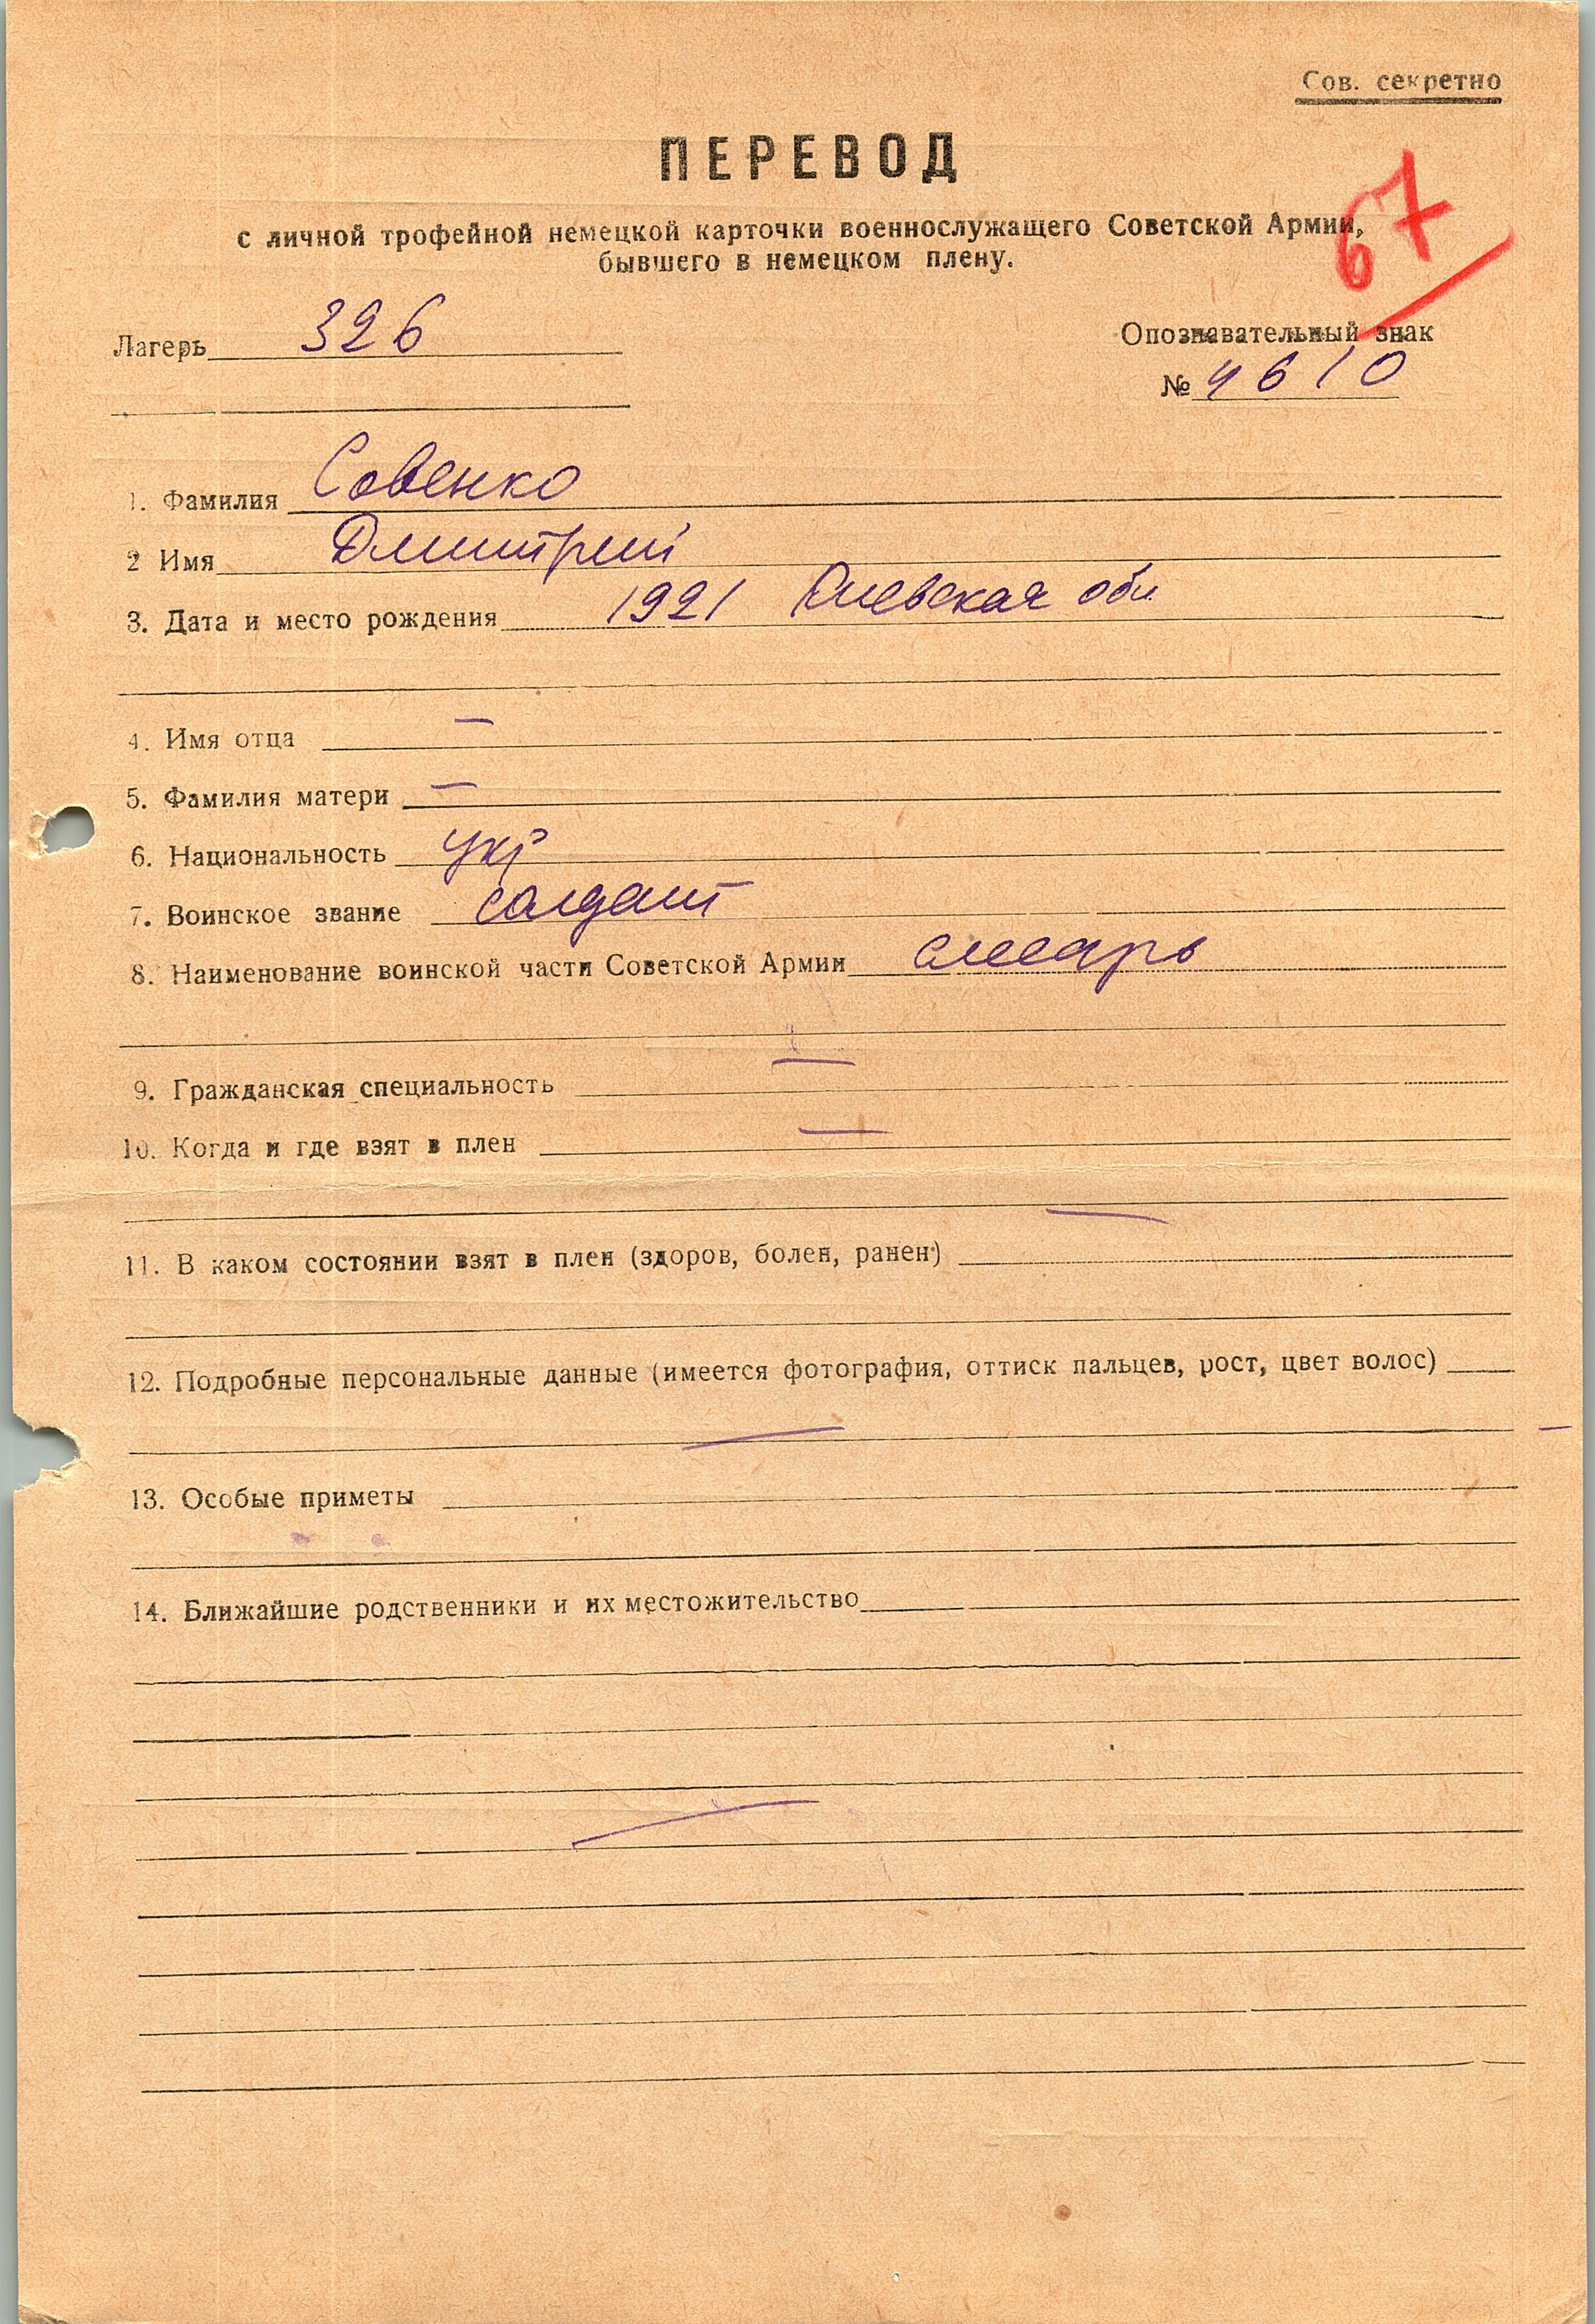 Сов. секретно
ПЕРЕВОД
67
с личной трофейной немецкой карточки военнослужащего Советской Армии,
бывшего в немецком плену.
Лагерь 326
Опознавательный знак
№ 4610
1. Фамилия Совенко
2 Имя Дмитрий
3. Дата и место рождения 1921 Киевская обл
4. Имя отца —
5. Фамилия матери —
6. Национальность укр
7. Воинское звание солдат
8. Наименование воинской части Советской Армии слесарь
9. Гражданская специальность —
10. Когда и где взят в плен —
—
11. В каком состоянии взят в плен (здоров, болен, ранен)
12. Подробные персональные данные (имеется фотография, оттиск пальцев, рост, цвет волос)
—
13. Особые приметы
14. Ближайшие родственники и их местожительство
—